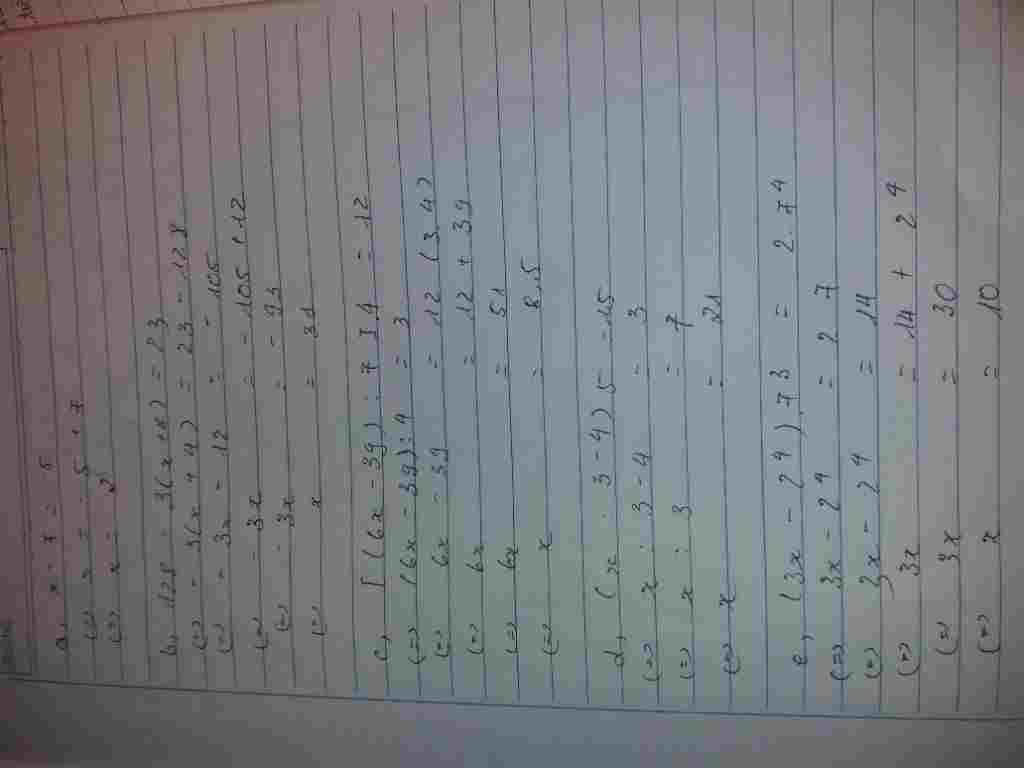 a, x - 7 = -5
(=) x = -5 + 7
(=) x = 2
b, 128 - 3(x+4) = 23
(=) - 3(x+4) = 23 - 128
(=) - 3x - 12 = - 105
(=) - 3x = - 105 + 12
(=) - 3x = - 93
(=) x = 31
c, [(6x - 39) : 7] 4 = 12
(=) (6x - 39) : 7 = 3
(=) 6x - 39 = 12 (3.4)
(=) 6x = 12 + 39
(=) 6x = 51
(=) x = 8,5
d, (x : 3 - 4) 5 = 15
(=) x : 3 - 4 = 3
(=) x : 3 = 7
(=) x = 21
e, (3x - 2⁴) 7³ = 2.7⁴
(=) 3x - 2⁴ = 2 7
(=) 3x - 2⁴ = 14
(=) 3x = 14 + 2⁴
(=) 3x = 30
(=) x = 10